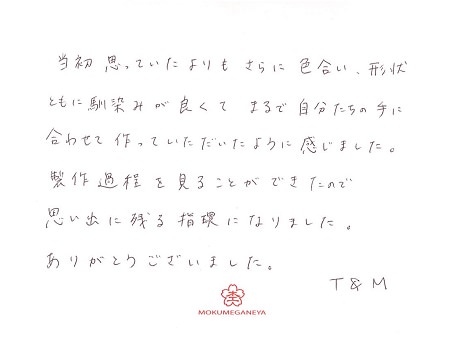 当初思っていたよりもさらに色合い、形状
ともに馴染みが良くて まるで自分たちの手に
合わせて作っていただいたように感じました。
製作過程を見ることができたので
思い出に残る指環になりました。
ありがとうございました。
T & M
MOKUMEGANEYA